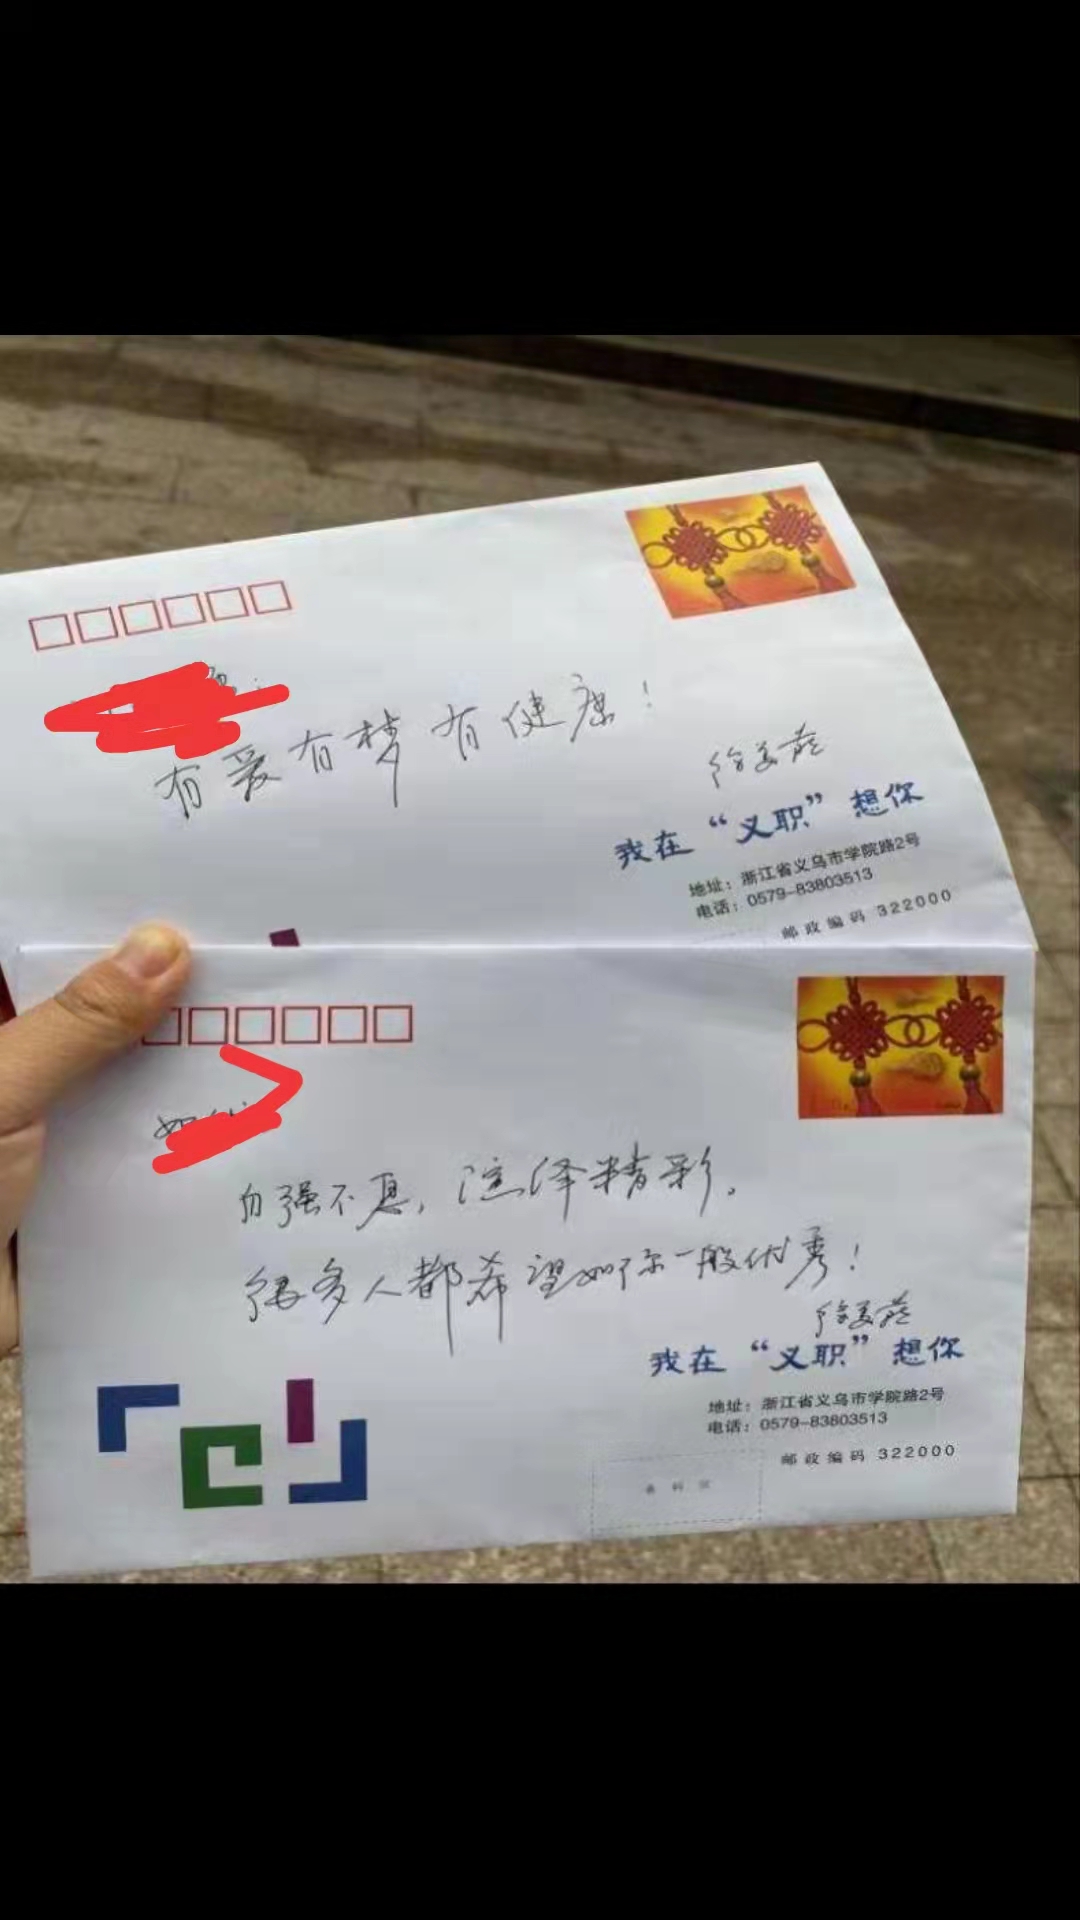 有爱有梦有健康！
徐美燕
我在“义职”想你
地址：浙江省义乌市学院路2号
电话：0579-83803513
邮政编码 322000
自强不息，演绎精彩。
很多人都希望如你一般优秀！
徐美燕
我在“义职”想你
地址：浙江省义乌市学院路2号
电话：0579-83803513
邮政编码 322000